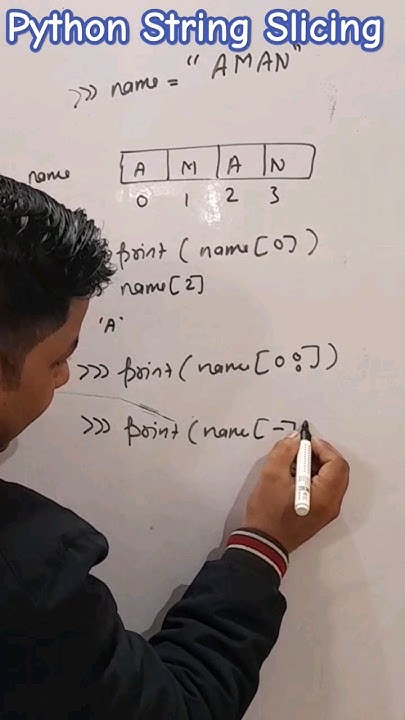 Python String Slicing
>>> name = "AMAN"
name A M A N
0 1 2 3
print ( name [0] )
name [2]
'A'
>>> print ( name [ 0 : ] )
>>> print ( name [ -